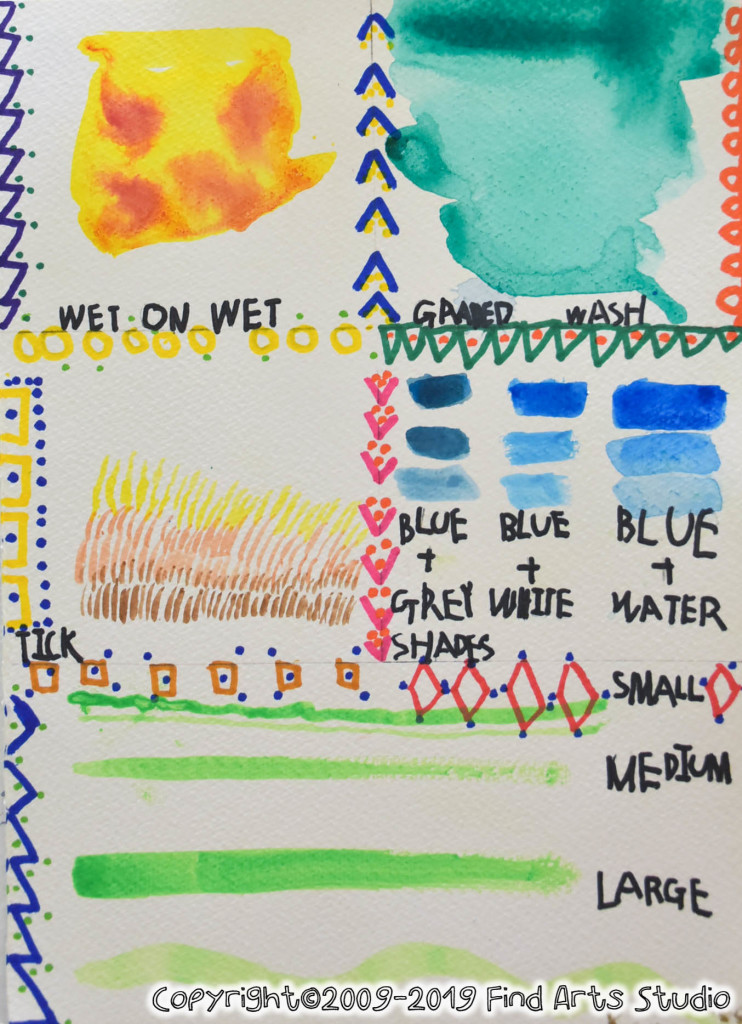 WET ON WET
GRADED WASH
BLUE
+
GREY
SHADES
BLUE
+
WHITE
BLUE
+
WATER
TICK
SMALL
MEDIUM
LARGE
Copyright©2009-2019 Find Arts Studio